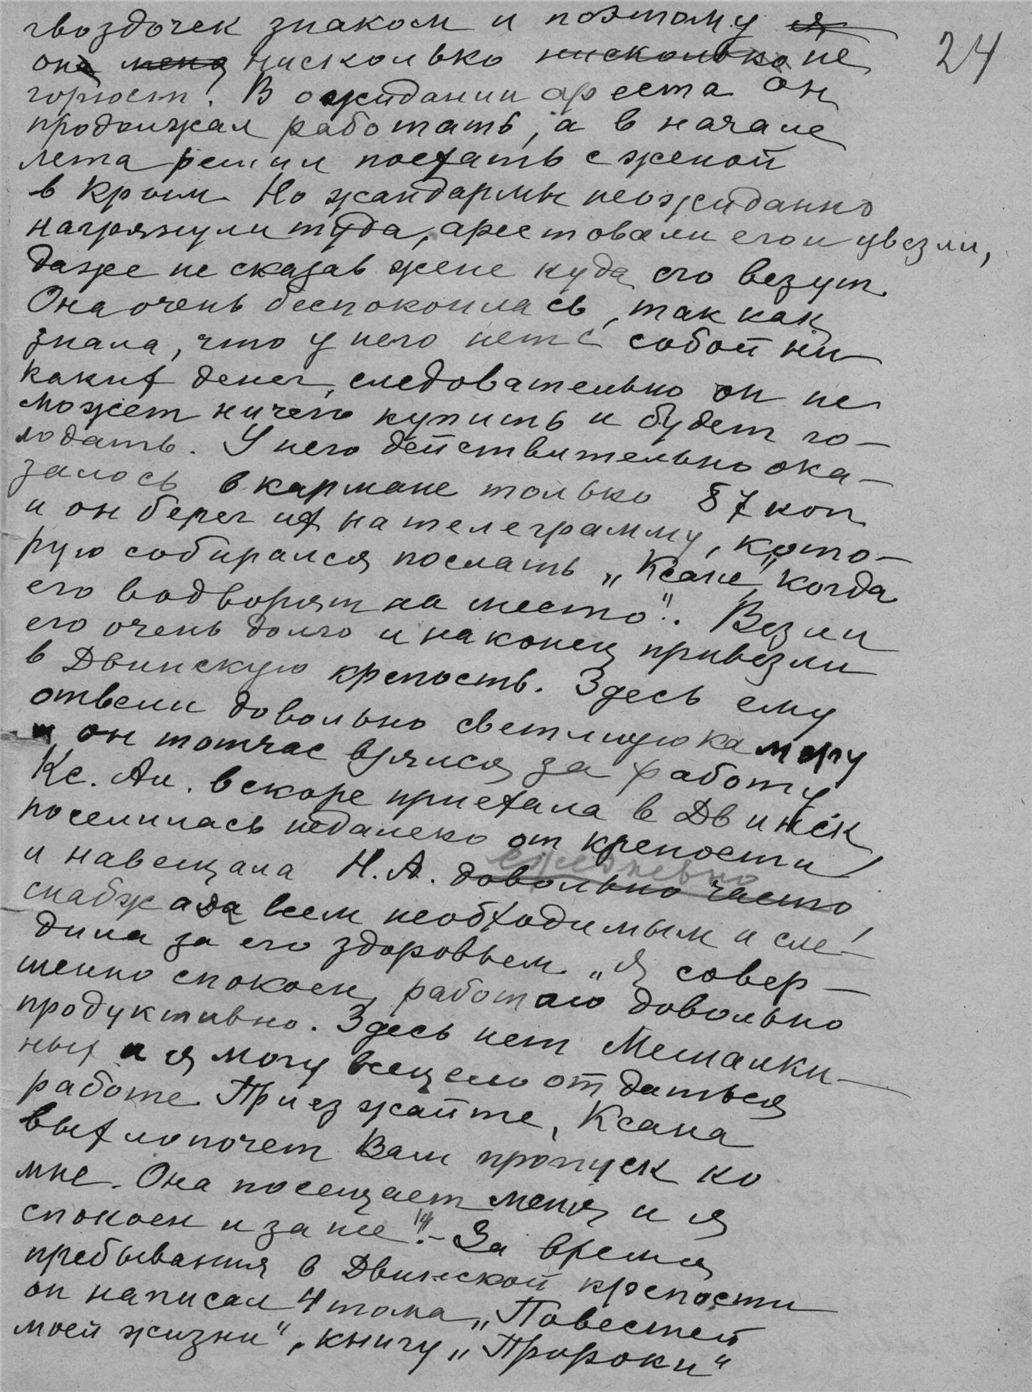 24
гвоздочек знаком и поэтому я
она меня нисколько нисколько не
гориост! В ожидании ареста он
продолжал работать, а в начале
лета решил поехать с женой
в Крым. Но жандармы неожиданно
нагрянули туда, арестовали его и увезли,
даже не сказав жене куда его везут.
Она очень беспокоилась, так как
знала, что у него нет с собой ни
каких денег, следовательно он не
может ничего купить и будет го-
лодать. У него действительно ока-
залось в кармане только 87 коп
и он берег их на телеграмму, кото-
рую собирался послать „Ксане", когда
его водворят на место". Везли
его очень долго и наконец привезли
в Двинскую крепость. Здесь ему
отвели довольно светлую камеру
и он тотчас взялся за работу
Кс. Ал. вскоре приехала в Двинск,
поселилась недалеко от крепости
ежедневно
и навещала Н.А. довольно часто,
снабжала всем необходимым и сле-
дила за его здоровьем „Я совер-
шенно спокоен, работаю довольно
продуктивно. Здесь нет Мешалки-
ных и я могу всецело отдаться
работе. Приезжайте, Ксана
выхлопочет Вам пропуск ко
мне. Она посещает меня и я
спокоен и за нее!" – За время
пребывания в Двинской крепости
он написал 4 тома „Повестей
моей жизни", книгу „Пророки"